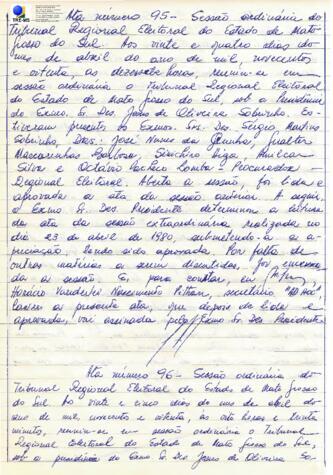 TRE-MS
Ata número 95 - Sessão ordinária do
Tribunal Regional Eleitoral do Estado de Mato
Grosso do Sul. Aos vinte e quatro dias do
mes de abril do ano de mil, novecentos
e oitenta, às dezessete horas, reuniu-se em
sessão ordinária o Tribunal Regional Eleitoral
do Estado de Mato Grosso do Sul, sob a Presidência
do Exmo. Sr. Des. Jesus de Oliveira Sobrinho. Es-
tiveram presentes os Exmos. Srs. Des. Sérgio Martins
Sobrinho, Drs. José Nunes da Cunha, Jualter
Mascarenhas Barbosa,
Silva e Octávio Pacheco Lomba - Procurador
Regional Eleitoral. Aberta a sessão, foi lida e
aprovada a ata da sessão anterior. A seguir
o Exmo Sr. Des. Presidente determinou a leitura
da ata da sessão extraordinária realizada no
dia 23 de abril de 1980, submetendo-a a a-
preciação, sendo aprovada. Por falta de
outras matérias a serem discutidas, foi encerra-
da a sessão. E, para constar, eu,
Horácio Vanderlei Nascimento Pithan, secretário "AD HOC"
lavrei a presente ata, que depois de lida e
aprovada, vai assinada pelo Exmo Sr. Des. Presidente.
Ata número 96 - Sessão ordinária do
Tribunal Regional Eleitoral do Estado de Mato Grosso
do Sul. Ao vinte e cinco dias do mes de abril do
ano de mil, novecentos e oitenta, às oito horas e trinta
minutos, reuniu-se em sessão ordinária o Tribunal
Regional Eleitoral do Estado de Mato Grosso do Sul,
sob a presidência do Exmo Sr. Des. Jesus de Oliveira So-